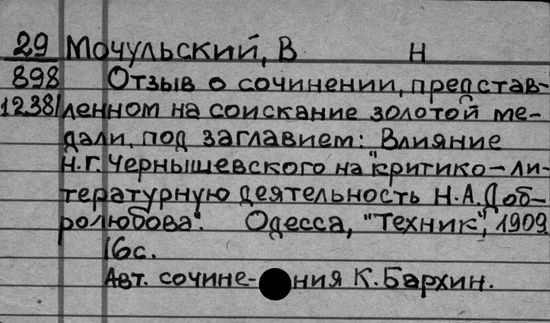 29 Мочульский, В Н
898 Отзыв о сочинении, представ-
12381 ленном на соискание золотой ме-
дали, под заглавием: Влияние
Н.Г. Чернышевского на "критико-ли-
тературную деятельность Н.А. Доб-
ролюбова". Одесса, "Техник", 1909
16с.
Авт. сочине- ния К. Бархин.